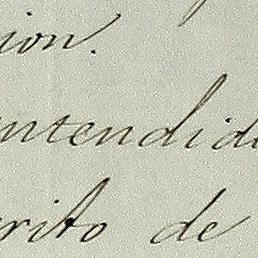 ion.
ntendido
rito de